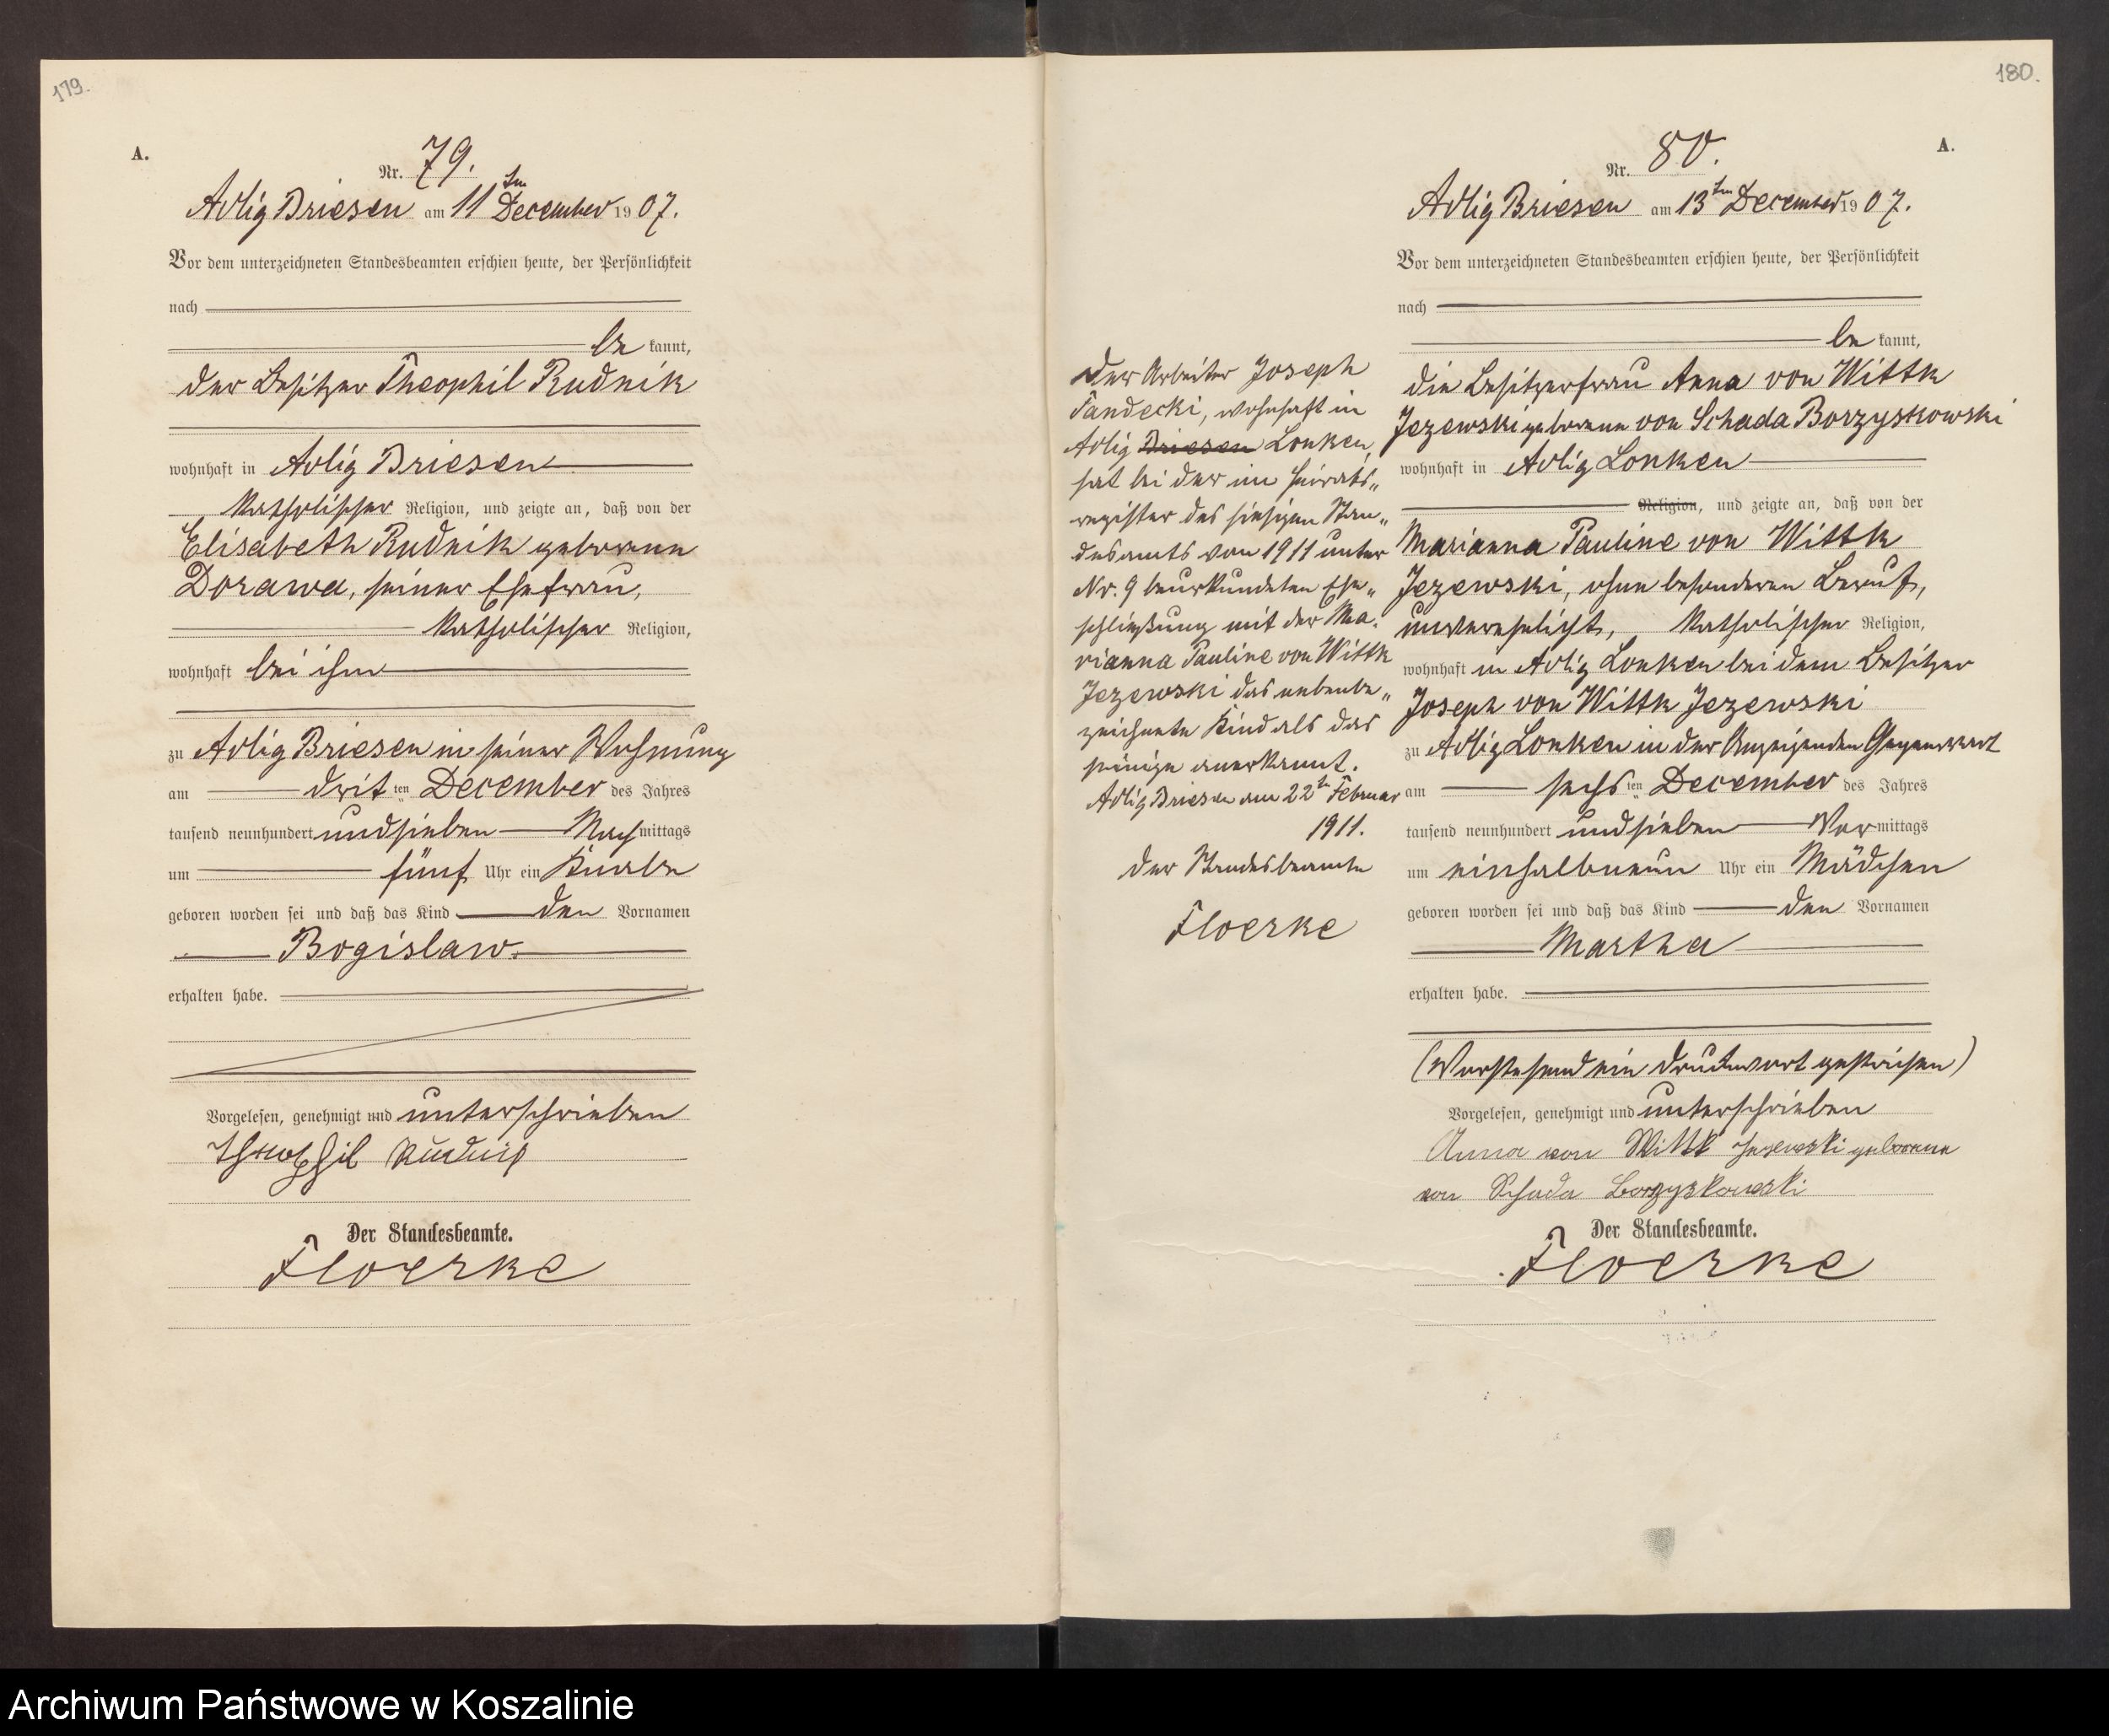 179.
A.
Nr. 79.
Adlig Briesen am 11ten December 1907.
Vor dem unterzeichneten Standesbeamten erschien heute, der Persönlichkeit
nach
be kannt,
der Besitzer Theophil Rudnik
wohnhaft in Adlig Briesen
katholischer Religion, und zeigte an, daß von der
Elisabeth Rudnik geborene
Dorawa, seiner Ehefrau,
katholischer Religion,
wohnhaft bei ihm
zu Adlig Briesen in seiner Wohnung
am dritten December des Jahres
tausend neunhundert und sieben Nachmittags
um fünf Uhr ein Knabe
geboren worden sei und daß das Kind den Vornamen
Bogislaw.
erhalten habe.
Vorgelesen, genehmigt und unterschrieben
Theophil Rudnik
Der Standesbeamte.
Floerke
180.
A.
Nr. 80.
Adlig Briesen am 13ten December 1907.
Vor dem unterzeichneten Standesbeamten erschien heute, der Persönlichkeit
nach
be kannt,
die Besitzerfrau Anna von Wittk
Jezewski geborene von Schada Borzyskowski
wohnhaft in Adlig Lonken
Religion, und zeigte an, daß von der
Marianna Pauline von Wittk
Jezewski, ohne besonderen Beruf,
unverehelicht, katholischer Religion,
wohnhaft in Adlig Lonken bei dem Besitzer
Joseph von Wittk Jezewski
zu Adlig Lonken in der Anzeigenden Gegenwart
am sechsten December des Jahres
tausend neunhundert und sieben Vormittags
um einhalbneun Uhr ein Mädchen
geboren worden sei und daß das Kind den Vornamen
Martha
erhalten habe.
(Vorstehend ein Druckwort gestrichen)
Vorgelesen, genehmigt und unterschrieben
Anna von Wittk Jezewski geborene
von Schada Borzyskowski
Der Standesbeamte.
Floerke
Der Arbeiter Joseph
Tandecki, wohnhaft in
Adlig Briesen Lonken,
hat bei der im Heirats„
register des hiesigen Stan„
desamts von 1911 unter
Nr. 9 beurkundeten Ehe„
schließung mit der Ma„
rianna Pauline von Wittk
Jezewski das nebenbe„
zeichnete Kind als das
seinige anerkannt.
Adlig Briesen am 22ten Februar
1911.
Der Standesbeamte
Floerke
Archiwum Państwowe w Koszalinie